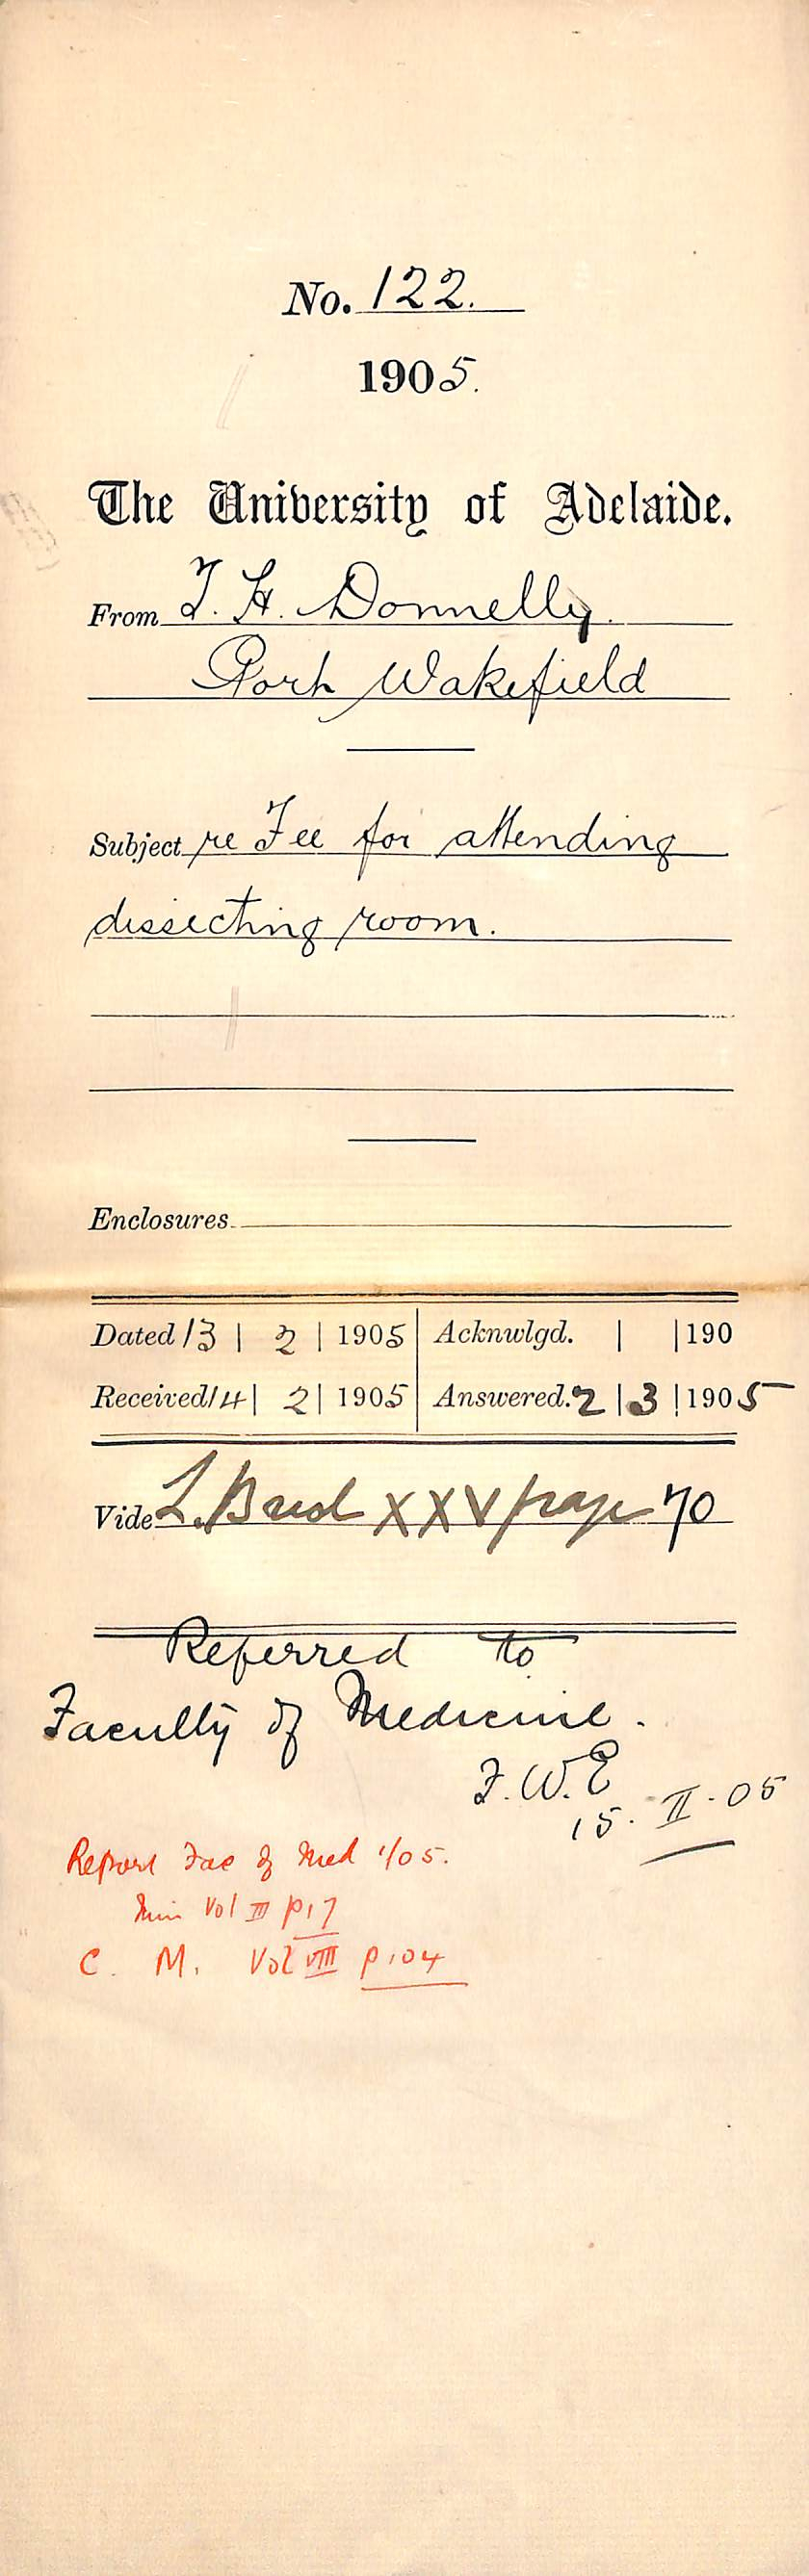 No. 122.
1905.
The University of Adelaide.
From T. H. Donnelly.
Port Wakefield
Subject re Fee for attending
dissecting room.
Enclosures
Dated 13 | 2 | 1905 Acknwlgd. | | 190
Received 14 | 2 | 1905 Answered. 2 | 3 | 1905
Vide L. Book XXV page 70
Referred to
Faculty of Medicine.
F.W.E
15. II. 05
Report Fac of Med 1/05.
Min Vol III p17
C. M. Vol VIII p104